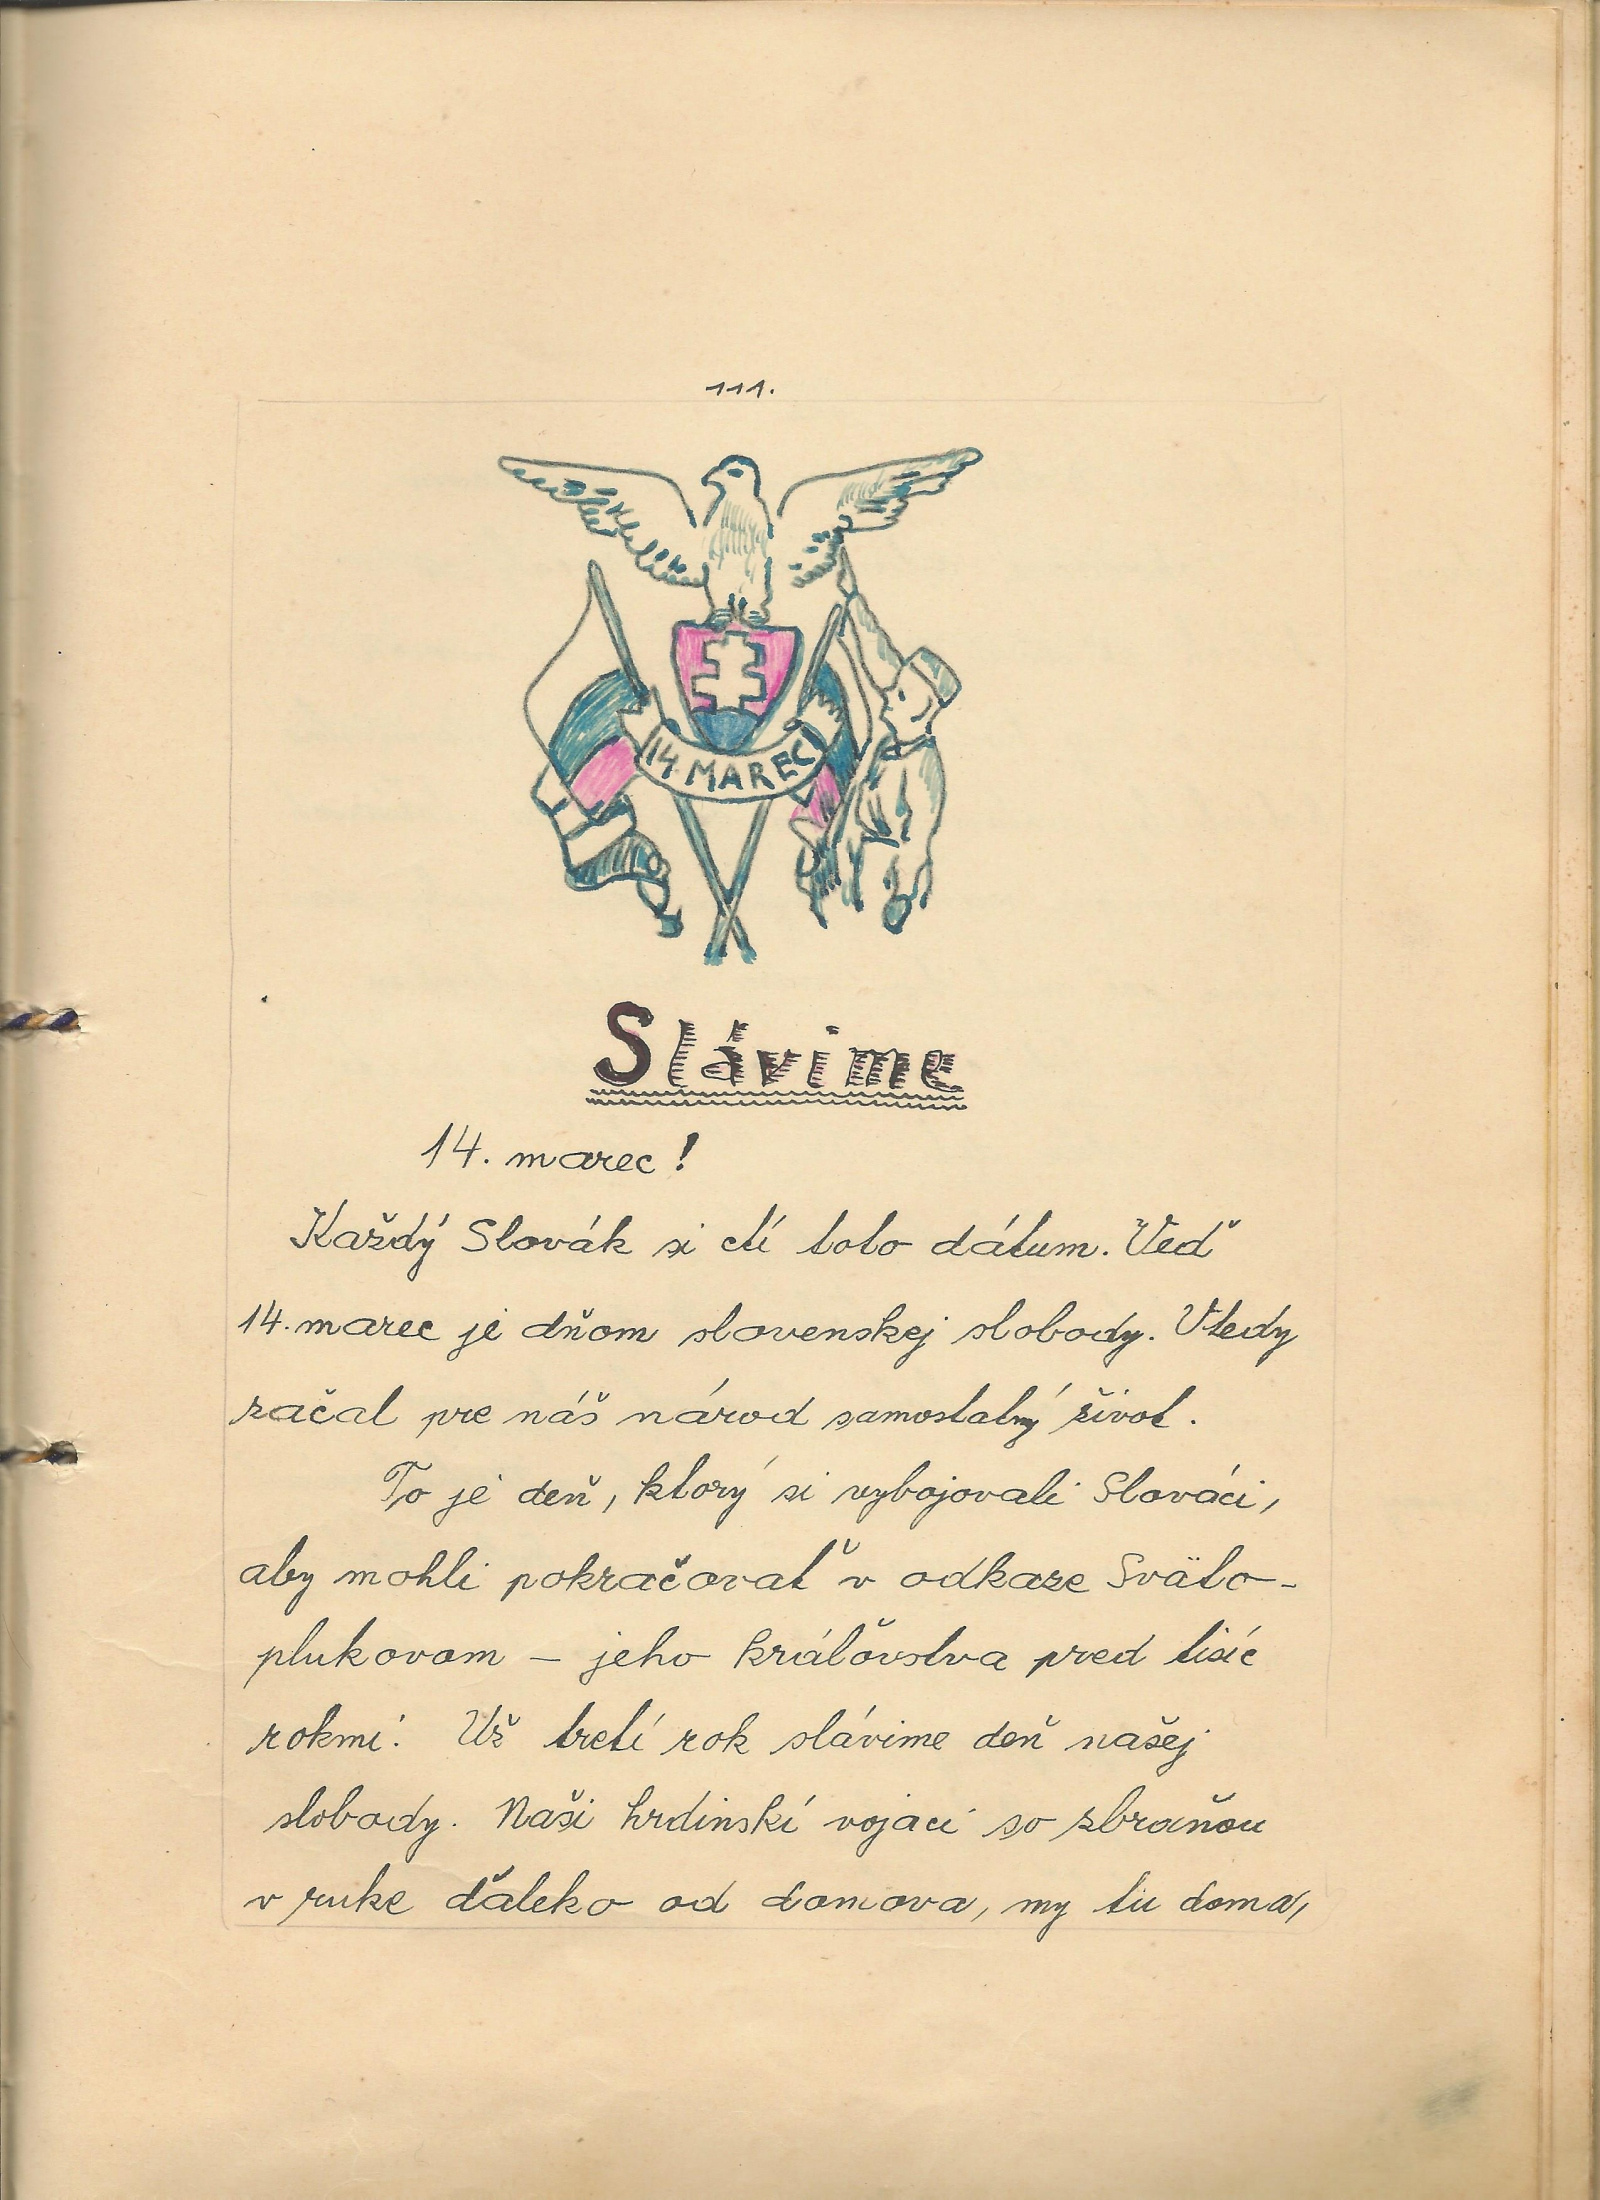 111.
14 MAREC
Slávime
14. marec!
Každý Slovák si ctí toto dátum. Veď
14. marec je dňom slovenskej slobody. Vtedy
začal pre náš národ samostatný život.
To je deň, ktorý si vybojovali Slováci,
aby mohli pokračovať v odkaze Sväto-
plukovom – jeho kráľovstva pred tisíc
rokmi. Už tretí rok slávime deň našej
slobody. Naši hrdinskí vojaci so zbraňou
v ruke ďaleko od domova, my tu doma,